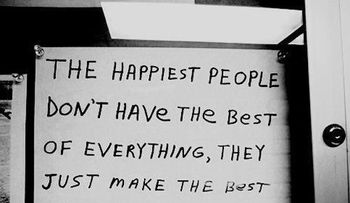 THE HAPPIEST PEOPLE
DON'T HAVE THE BEST
OF EVERYTHING, THEY
JUST MAKE THE BEST